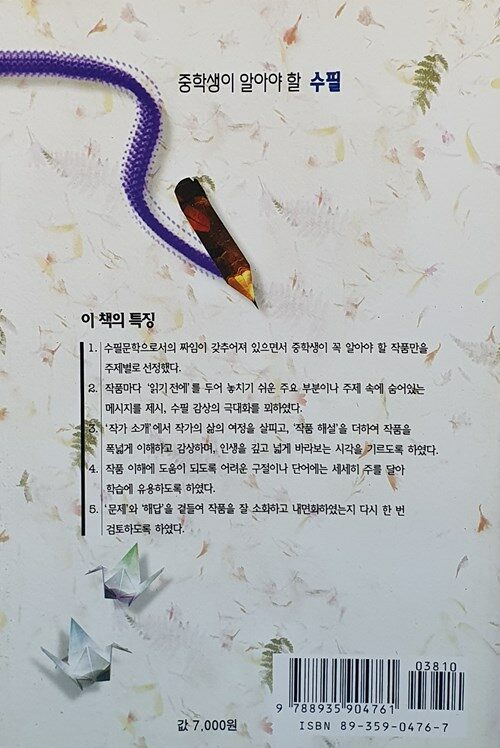 중학생이 알아야 할 수필
이 책의 특징
1. 수필문학으로서의 짜임이 갖추어져 있으면서 중학생이 꼭 알아야 할 작품만을
주제별로 선정했다.
2. 작품마다 '읽기 전에'를 두어 놓치기 쉬운 주요 부분이나 주제 속에 숨어있는
메시지를 제시, 수필 감상의 극대화를 꾀하였다.
3. '작가 소개'에서 작가의 삶의 여정을 살피고, '작품 해설'을 더하여 작품을
폭넓게 이해하고 감상하며, 인생을 깊고 넓게 바라보는 시각을 기르도록 하였다.
4. 작품 이해에 도움이 되도록 어려운 구절이나 단어에는 세세히 주를 달아
학습에 유용하도록 하였다.
5. '문제'와 '해답'을 곁들여 작품을 잘 소화하고 내면화하였는지 다시 한 번
검토하도록 하였다.
03810
9 788935 904761
값 7,000원
ISBN 89-359-0476-7